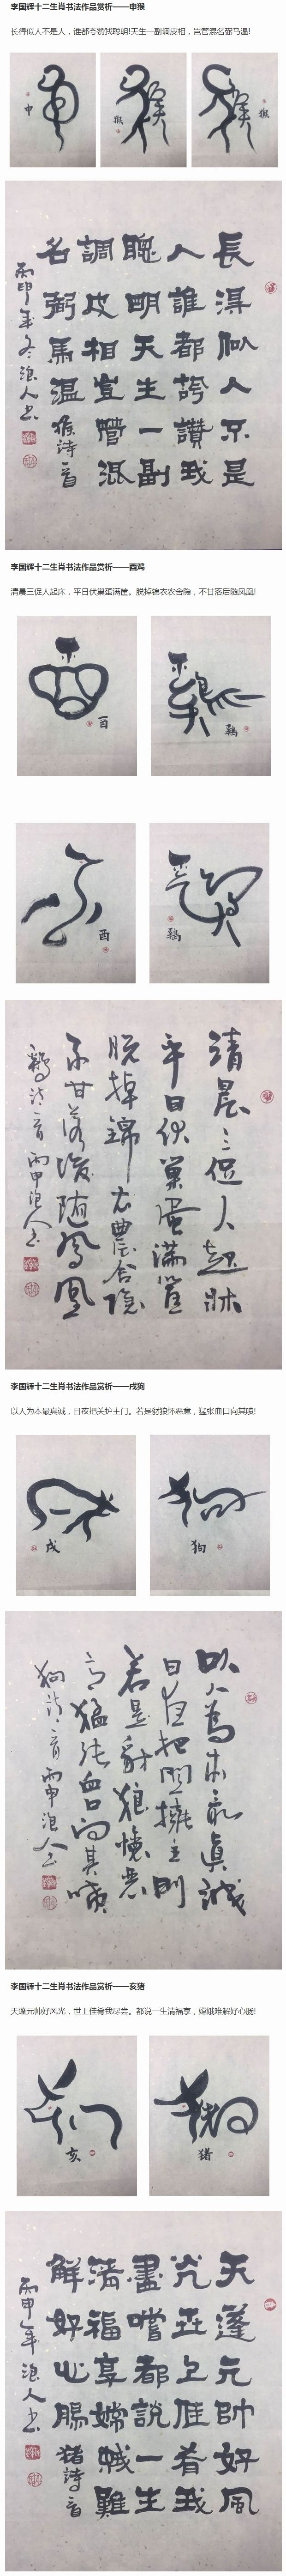 李国辉十二生肖书法作品赏析——申猴
长得似人不是人，谁都夸赞我聪明!天生一副调皮相，岂管混名弼马温!
申
猴
猴
長得似人不是
人誰都誇讚我
聰明天生一副
調皮相豈管混
名弼馬溫
猴詩一首
丙申年冬浪人书
李国辉十二生肖书法作品赏析——酉鸡
清晨三促人起床，平日伏巢蛋满筐。脱掉锦衣农舍隐，不甘落后随凤凰!
酉
鷄
酉
鷄
清晨三促人起牀
平日伏巢蛋满筐
脱掉錦衣農舍隐
不甘落後随鳳凰
鷄詩一首丙申浪人书
李国辉十二生肖书法作品赏析——戌狗
以人为本最真诚，日夜把关护主门。若是豺狼怀恶意，猛张血口向其喷!
戌
狗
以人爲本最真誠
日夜把関擁主門
若是豺狼懷恶
意猛张血口向其喷
狗詩一首丙申浪人书
李国辉十二生肖书法作品赏析——亥猪
天蓬元帅好风光，世上佳肴我尽尝。都说一生清福享，嫦娥难解好心肠!
亥
猪
天蓬元帥好風
光世上佳肴我
盡嚐都說一生
清福享嫦娥難
解好心腸
猪詩一首
丙申年浪人书